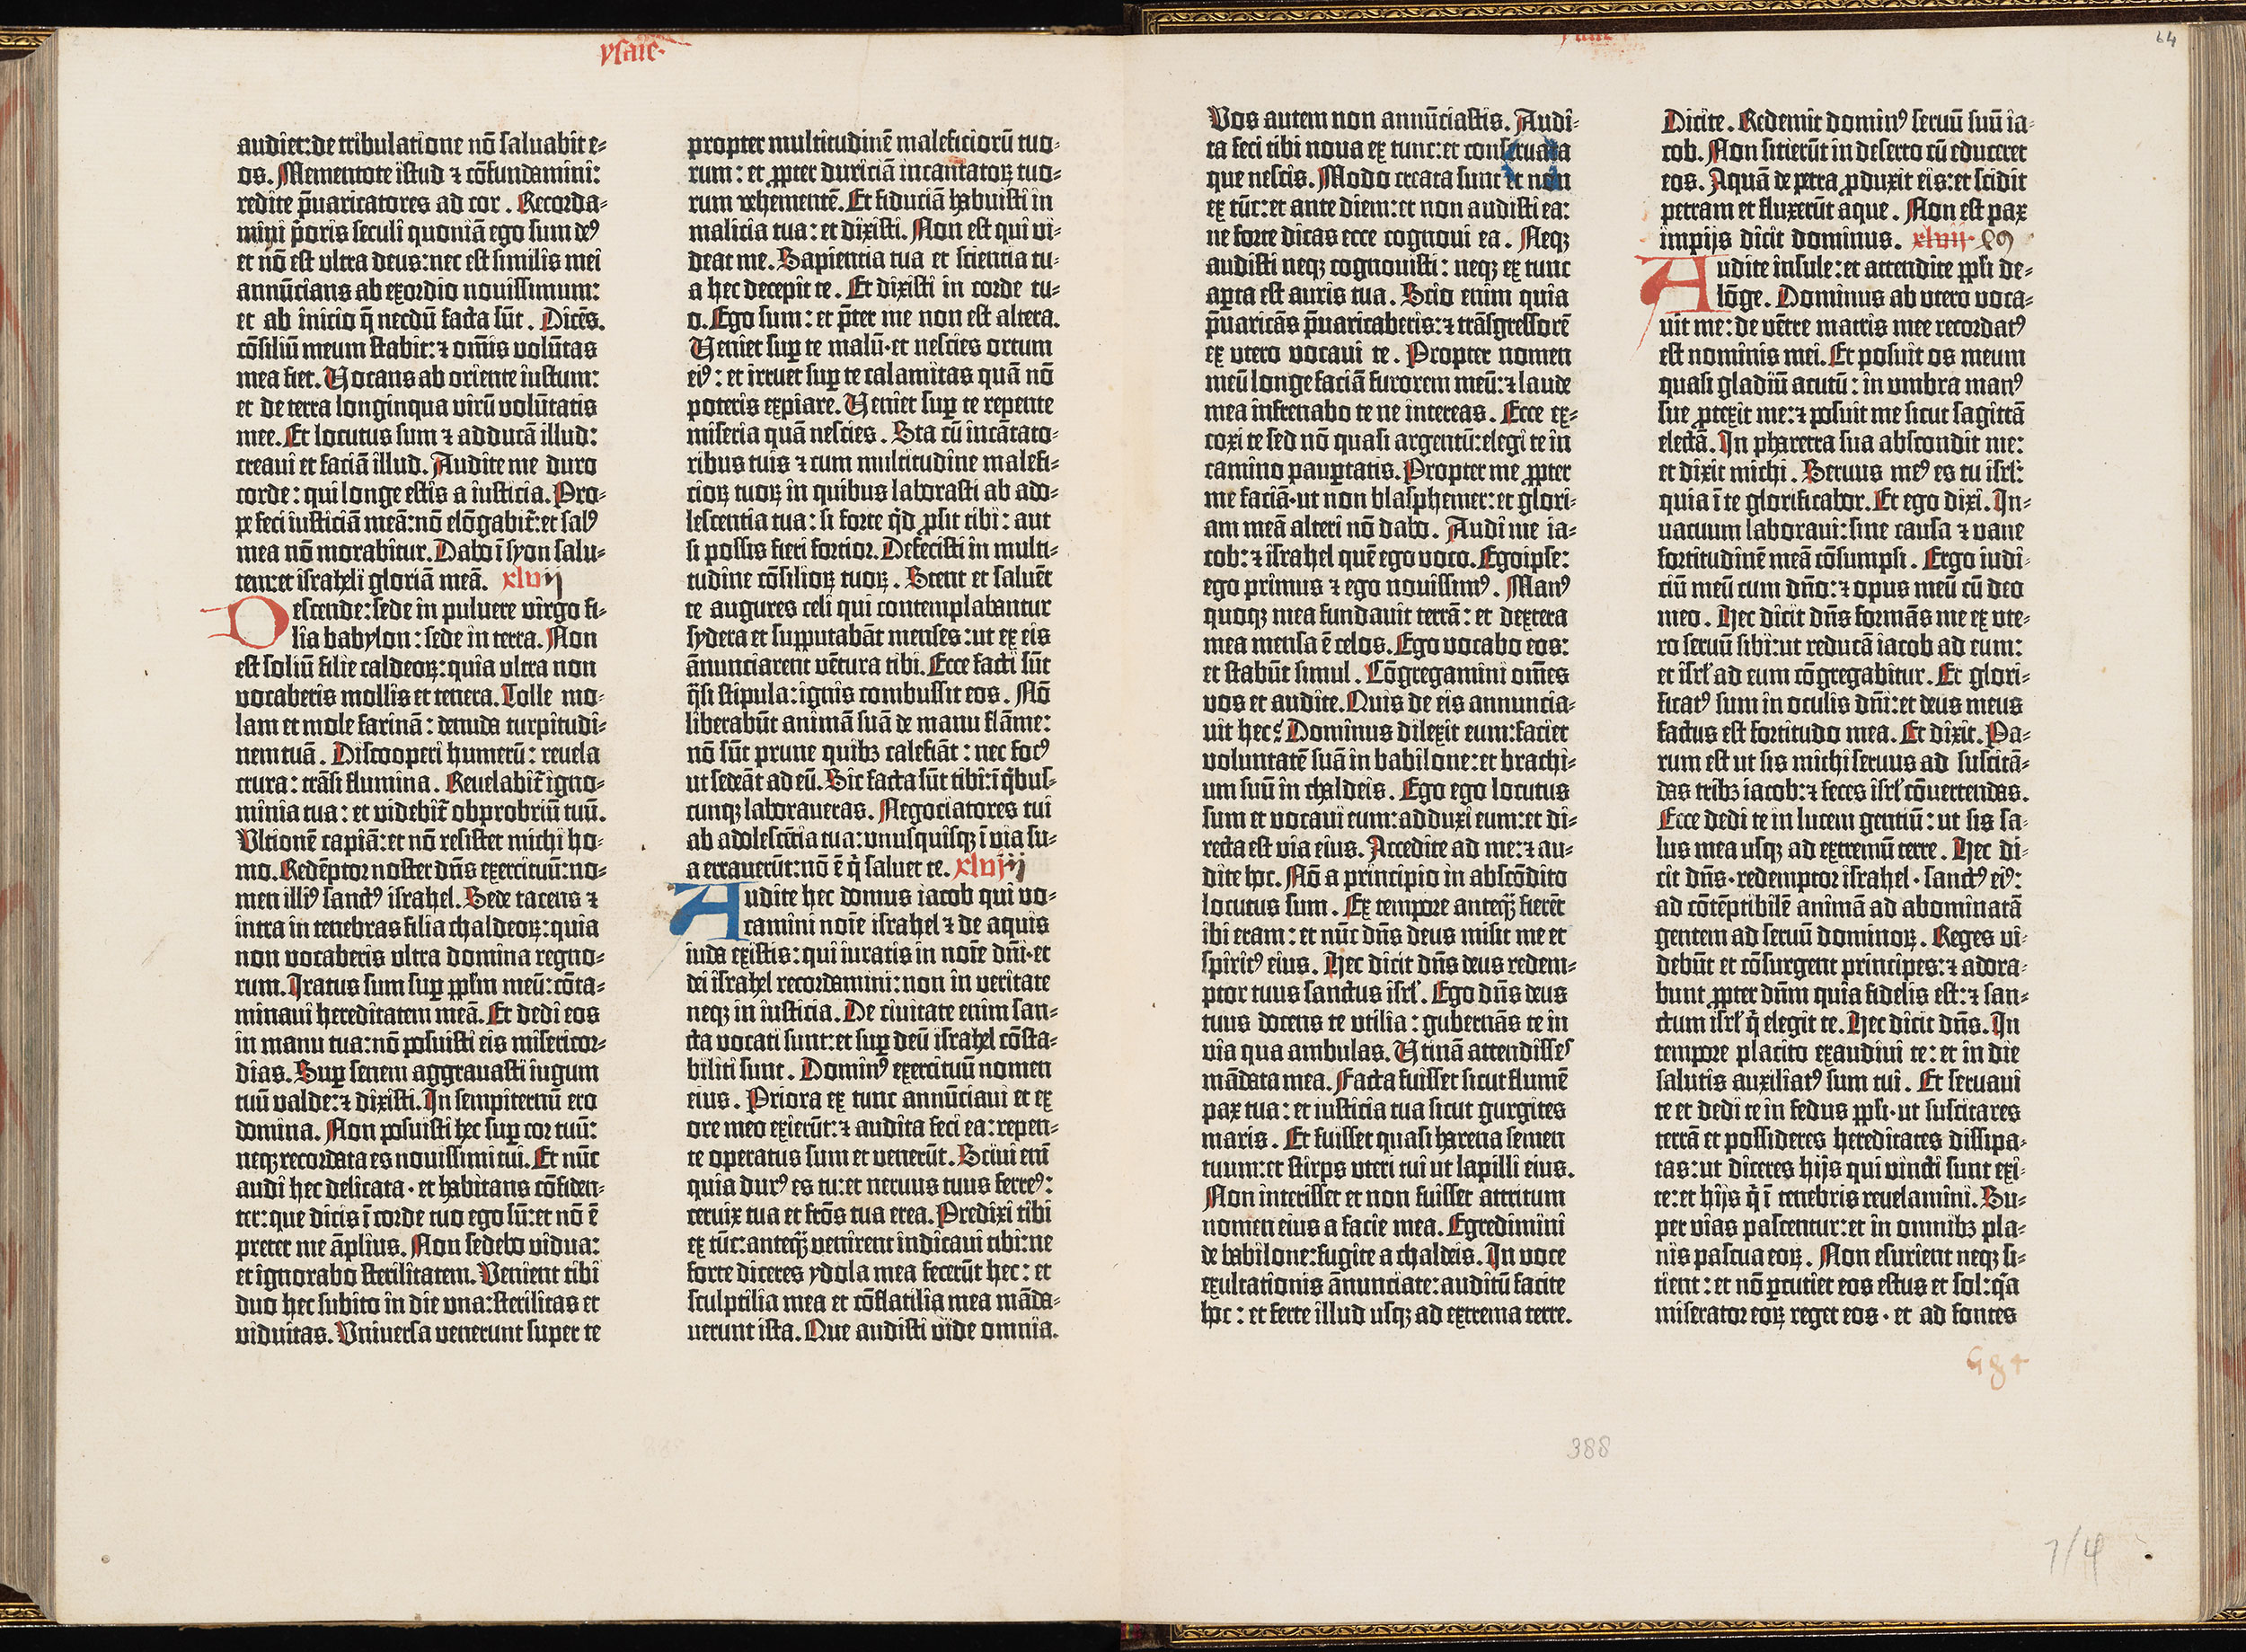 ysaie·
audiet:de tribulatione nō saluabit e-
os. Mementote istud ⁊ cōfundamini:
redite p̄uaricatores ad cor. Recorda-
mini p̄oris seculi quoniā ego sum deꝰ
et nō est ultra deus:nec est similis mei
annūcians ab exordio nouissimum:
et ab inicio q̄ necdū facta sūt. Dicēs.
cōsiliū meum stabit:⁊ om̄is volūtas
mea fiet. Vocans ab oriente iustum:
et de terra longinqua virū volūtatis
mee. Et locutus sum ⁊ adducā illud:
creaui et faciā illud. Audite me duro
corde: qui longe estis a iusticia. Pro-
pe feci iusticiā meā:nō elōgabit᷑:et salꝰ
mea nō morabitur. Dabo ī syon salu-
tem:et israheli gloriā meā. xlvij
Descende:sede in puluere virgo fi-
lia babylon: sede in terra. Non
est soliū filie caldeoꝝ:quia ultra non
vocaberis mollis et tenera. Tolle mo-
lam et mole farinā: denuda turpitudi-
nem tuā. Discooperi humerū: reuela
crura: trāsi flumina. Reuelabit᷑ igno-
minia tua: et videbit᷑ obprobriū tuū.
Ultionē capiā:et nō resistet michi ho-
mo. Redēptor noster dn̄s exercituū:no-
men illiꝰ sanctꝰ israhel. Sede tacens ⁊
intra in tenebras filia chaldeoꝝ:quia
non vocaberis ultra domina regno-
rum. Iratus sum suꝑ pp̄lm meū:cōta-
minaui hereditatem meā. Et dedi eos
in manu tua:nō posuisti eis misericor-
dias. Suꝑ senem aggrauasti iugum
tuū valde:⁊ dixisti. In sempiternū ero
domina. Non posuisti hec suꝑ cor tuū:
neqꝫ recordata es nouissimi tui. Et nūc
audi hec delicata · et habitans cōfiden-
ter:que dicis ī corde tuo ego sū:et nō ē
preter me āplius. Non sedebo vidua:
et ignorabo sterilitatem. Venient tibi
duo hec subito in die una:sterilitas et
viduitas. Vniuersa venerunt super te
propter multitudinē maleficiorū tuo-
rum: et ꝓpter duriciā incantatoꝝ tuo-
rum vehementē. Et fiduciā habuisti in
malicia tua: et dixisti. Non est qui vi-
deat me. Sapientia tua et scientia tu-
a hec decepit te. Et dixisti in corde tu-
o. Ego sum: et p̄ter me non est altera.
Veniet suꝑ te malū·et nescies ortum
eiꝰ: et irruet suꝑ te calamitas quā nō
poteris expiare. Veniet suꝑ te repente
miseria quā nescies. Sta cū incātato-
ribus tuis ⁊ cum multitudine malefi-
cioꝝ tuoꝝ in quibus laborasti ab ado-
lescentia tua: si forte qd̓ ꝓsit tibi: aut
si possis fieri fortior. Defecisti in multi-
tudine cōsilioꝝ tuoꝝ. Stent et saluēt
te augures celi qui contemplabantur
sydera et supputabāt menses:ut ex eis
ānunciarent vētura tibi. Ecce facti sūt
q̄si stipula:ignis combussit eos. Nō
liberabūt animā suā de manu flāme:
nō sūt prune quibꝫ calefiāt: nec focꝰ
ut sedeāt ad eū. Sic facta sūt tibi:ī qͥbus-
cunqꝫ laboraueras. Negociatores tui
ab adolescētia tua:unusquisqꝫ ī via su-
a errauerūt:nō ē qͥ saluet te. xlviij
Audite hec domus iacob qui vo-
camini noīe israhel ⁊ de aquis
iuda existis: qui iuratis in noīe dn̄i·et
dei israhel recordamini:non in veritate
neqꝫ in iusticia. De ciuitate enim san-
cta vocati sunt:et suꝑ deū israhel cōsta-
biliti sunt. Dominꝰ exercituū nomen
eius. Priora ex tunc annūciaui et ex
ore meo exierūt:⁊ audita feci ea:repen-
te operatus sum et venerūt. Sciui enī
quia durꝰ es tu:et neruus tuus ferreꝰ:
ceruix tua et frōs tua erea. Predixi tibi
ex tūc:anteqͣ̄ venirent indicaui tibi:ne
forte diceres ydola mea fecerūt hec: et
sculptilia mea et cōflatilia mea māda-
uerunt ista. Que audisti vide omnia.
64
Vos autem non annūciastis. Audi-
ta feci tibi noua ex tunc:et conseruata
que nescis. Modo creata sunt et non
ex tūc:et ante diem:et non audisti ea:
ne forte dicas ecce cognoui ea. Neqꝫ
audisti neqꝫ cognouisti: neqꝫ ex tunc
aꝑta est auris tua. Scio enim quia
p̄uaricās p̄uaricaberis:⁊ trāsgressorē
ex utero vocaui te. Propter nomen
meū longe faciā furorem meū:⁊ laude
mea infrenabo te ne intereas. Ecce ex-
coxi te sed nō quasi argentū:elegi te in
camino pauꝑtatis. Propter me ꝓpter
me faciā·ut non blasphemer:et glori-
am meā alteri nō dabo. Audi me ia-
cob:⁊ israhel quē ego voco. Ego ipse:
ego primus ⁊ ego nouissimꝰ. Manꝰ
quoqꝫ mea fundauit terrā: et dextera
mea mensa ē celos. Ego vocabo eos:
et stabūt simul. Cōgregamini om̄es
vos et audite. Quis de eis annuncia-
uit hec? Dominus dilexit eum:faciet
voluntatē suā in babilone:et brachi-
um suū in chaldeis. Ego ego locutus
sum et vocaui eum:adduxi eum:et di-
recta est via eius. Accedite ad me:⁊ au-
dite hoc. Nō a principio in abscōdito
locutus sum. Ex tempore anteqͣ̄ fierēt
ibi eram: et nūc dn̄s deus misit me et
spiritꝰ eius. Hec dicit dn̄s deus redem-
ptor tuus sanctus isrl̓. Ego dn̄s deus
tuus docens te utilia: gubernās te in
via qua ambulas. Utinā attendisses
mādata mea. Facta fuisset sicut flumē
pax tua: et iusticia tua sicut gurgites
maris. Et fuisset quasi harena semen
tuum:et stirps uteri tui ut lapilli eius.
Non interisset et non fuisset attritum
nomen eius a facie mea. Egredimini
de babilone:fugite a chaldeis. In voce
exultationis ānunciate:auditū facite
hoc: et ferte illud usqꝫ ad extrema terre.
Dicite. Redemit dominꝰ seruū suū ia-
cob. Non sitierūt in deserto cū educeret
eos. Aquā de petra ꝓduxit eis:et scidit
petram et fluxerūt aque. Non est pax
impijs dicit dominus. xlvij·
Audite insule:et attendite pp̄li de-
lōge. Dominus ab utero voca-
uit me:de vētre matris mee recordatꝰ
est nominis mei. Et posuit os meum
quasi gladiū acutū: in umbra manꝰ
sue ꝓtexit me:⁊ posuit me sicut sagittā
electā. In pharetra sua abscondit me:
et dixit michi. Seruus meꝰ es tu isrl̓:
quia ī te glorificabor. Et ego dixi. In-
uacuum laboraui:sine causa ⁊ vane
fortitudinē meā cōsumpsi. Ergo iudi-
ciū meū cum dn̄o:⁊ opus meū cū deo
meo. Hec dicit dn̄s formās me ex ute-
ro seruū sibi:ut reducā iacob ad eum:
et isrl̓ ad eum cōgregabitur. Et glori-
ficatꝰ sum in oculis dn̄i:et deus meus
factus est fortitudo mea. Et dixit. Pa-
rum est ut sis michi seruus ad suscitā-
das tribꝫ iacob:⁊ feces isrl̓ cōuertendas.
Ecce dedi te in lucem gentiū: ut sis sa-
lus mea usqꝫ ad extremū terre. Hec di-
cit dn̄s·redemptor israhel·sanctꝰ eiꝰ:
ad cōtēptibilē animā ad abominatā
gentem ad seruū dominoꝝ. Reges vi-
debūt et cōsurgent principes:⁊ adora-
bunt ꝓpter dn̄m quia fidelis est:⁊ san-
ctum isrl̓ qͥ elegit te. Hec dicit dn̄s. In
tempore placito exaudiui te: et in die
salutis auxiliatꝰ sum tui. Et seruaui
te et dedi te in fedus pp̄li·ut suscitares
terrā et possideres hereditates dissipa-
tas:ut diceres hijs qui vincti sunt exi-
te:et hijs qͥ ī tenebris reuelamini. Su-
per vias pascentur:et in omnibꝫ pla-
nis pascua eoꝝ. Non esurient neqꝫ si-
tient: et nō ꝑcutiet eos estus et sol:qͥa
miserator eoꝝ reget eos · et ad fontes
388